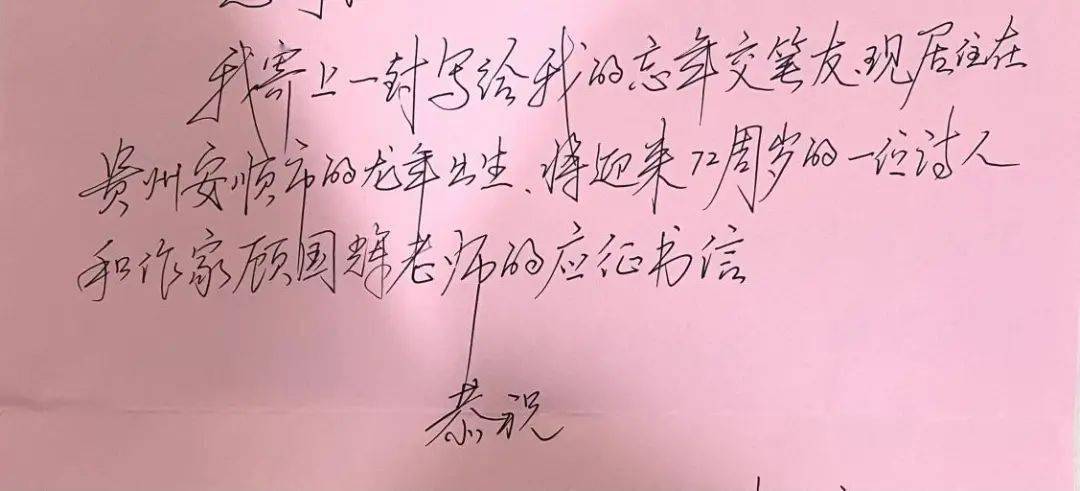 我寄上一封写给我的忘年交笔友、现居住在
贵州安顺市的龙年出生、将迎来72周岁的一位诗人
和作家顾国辉老师的应征书信
恭祝